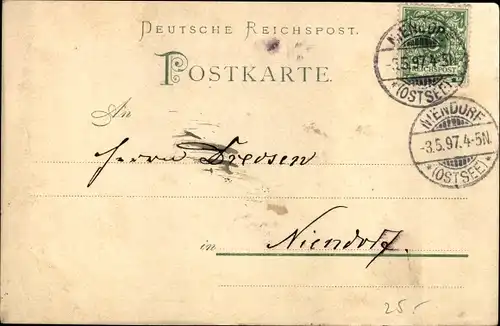 DEUTSCHE REICHSPOST.
POSTKARTE.
NIENDORF
-3.5.97.4-5N.
*(OSTSEE)*
REICHSPOST
An
NIENDORF
-3.5.97.4-5N.
*(OSTSEE)*
Herrn Dreosen
in Niendorf.
25.-